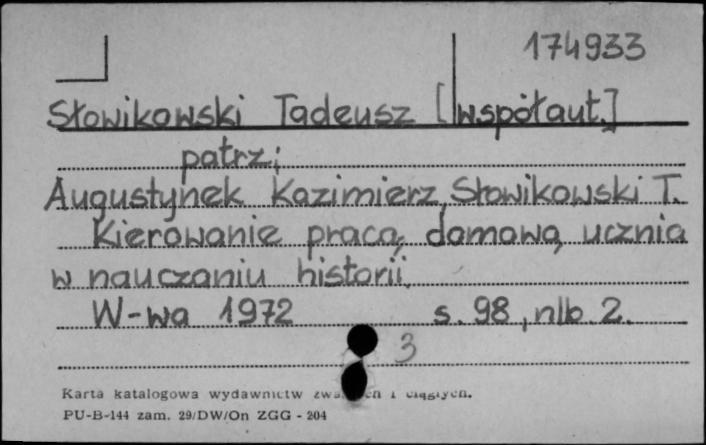 174933
Słowikowski Tadeusz [współaut.]
patrz:
Augustynek Kazimierz, Słowikowski T.
Kierowanie pracą domową ucznia
w nauczaniu historii.
W-wa 1972 s. 98, nlb. 2.
3
Karta katalogowa wydawnictw i ciągłych.
PU-B-144 zam. 29/DW/On ZGG - 204